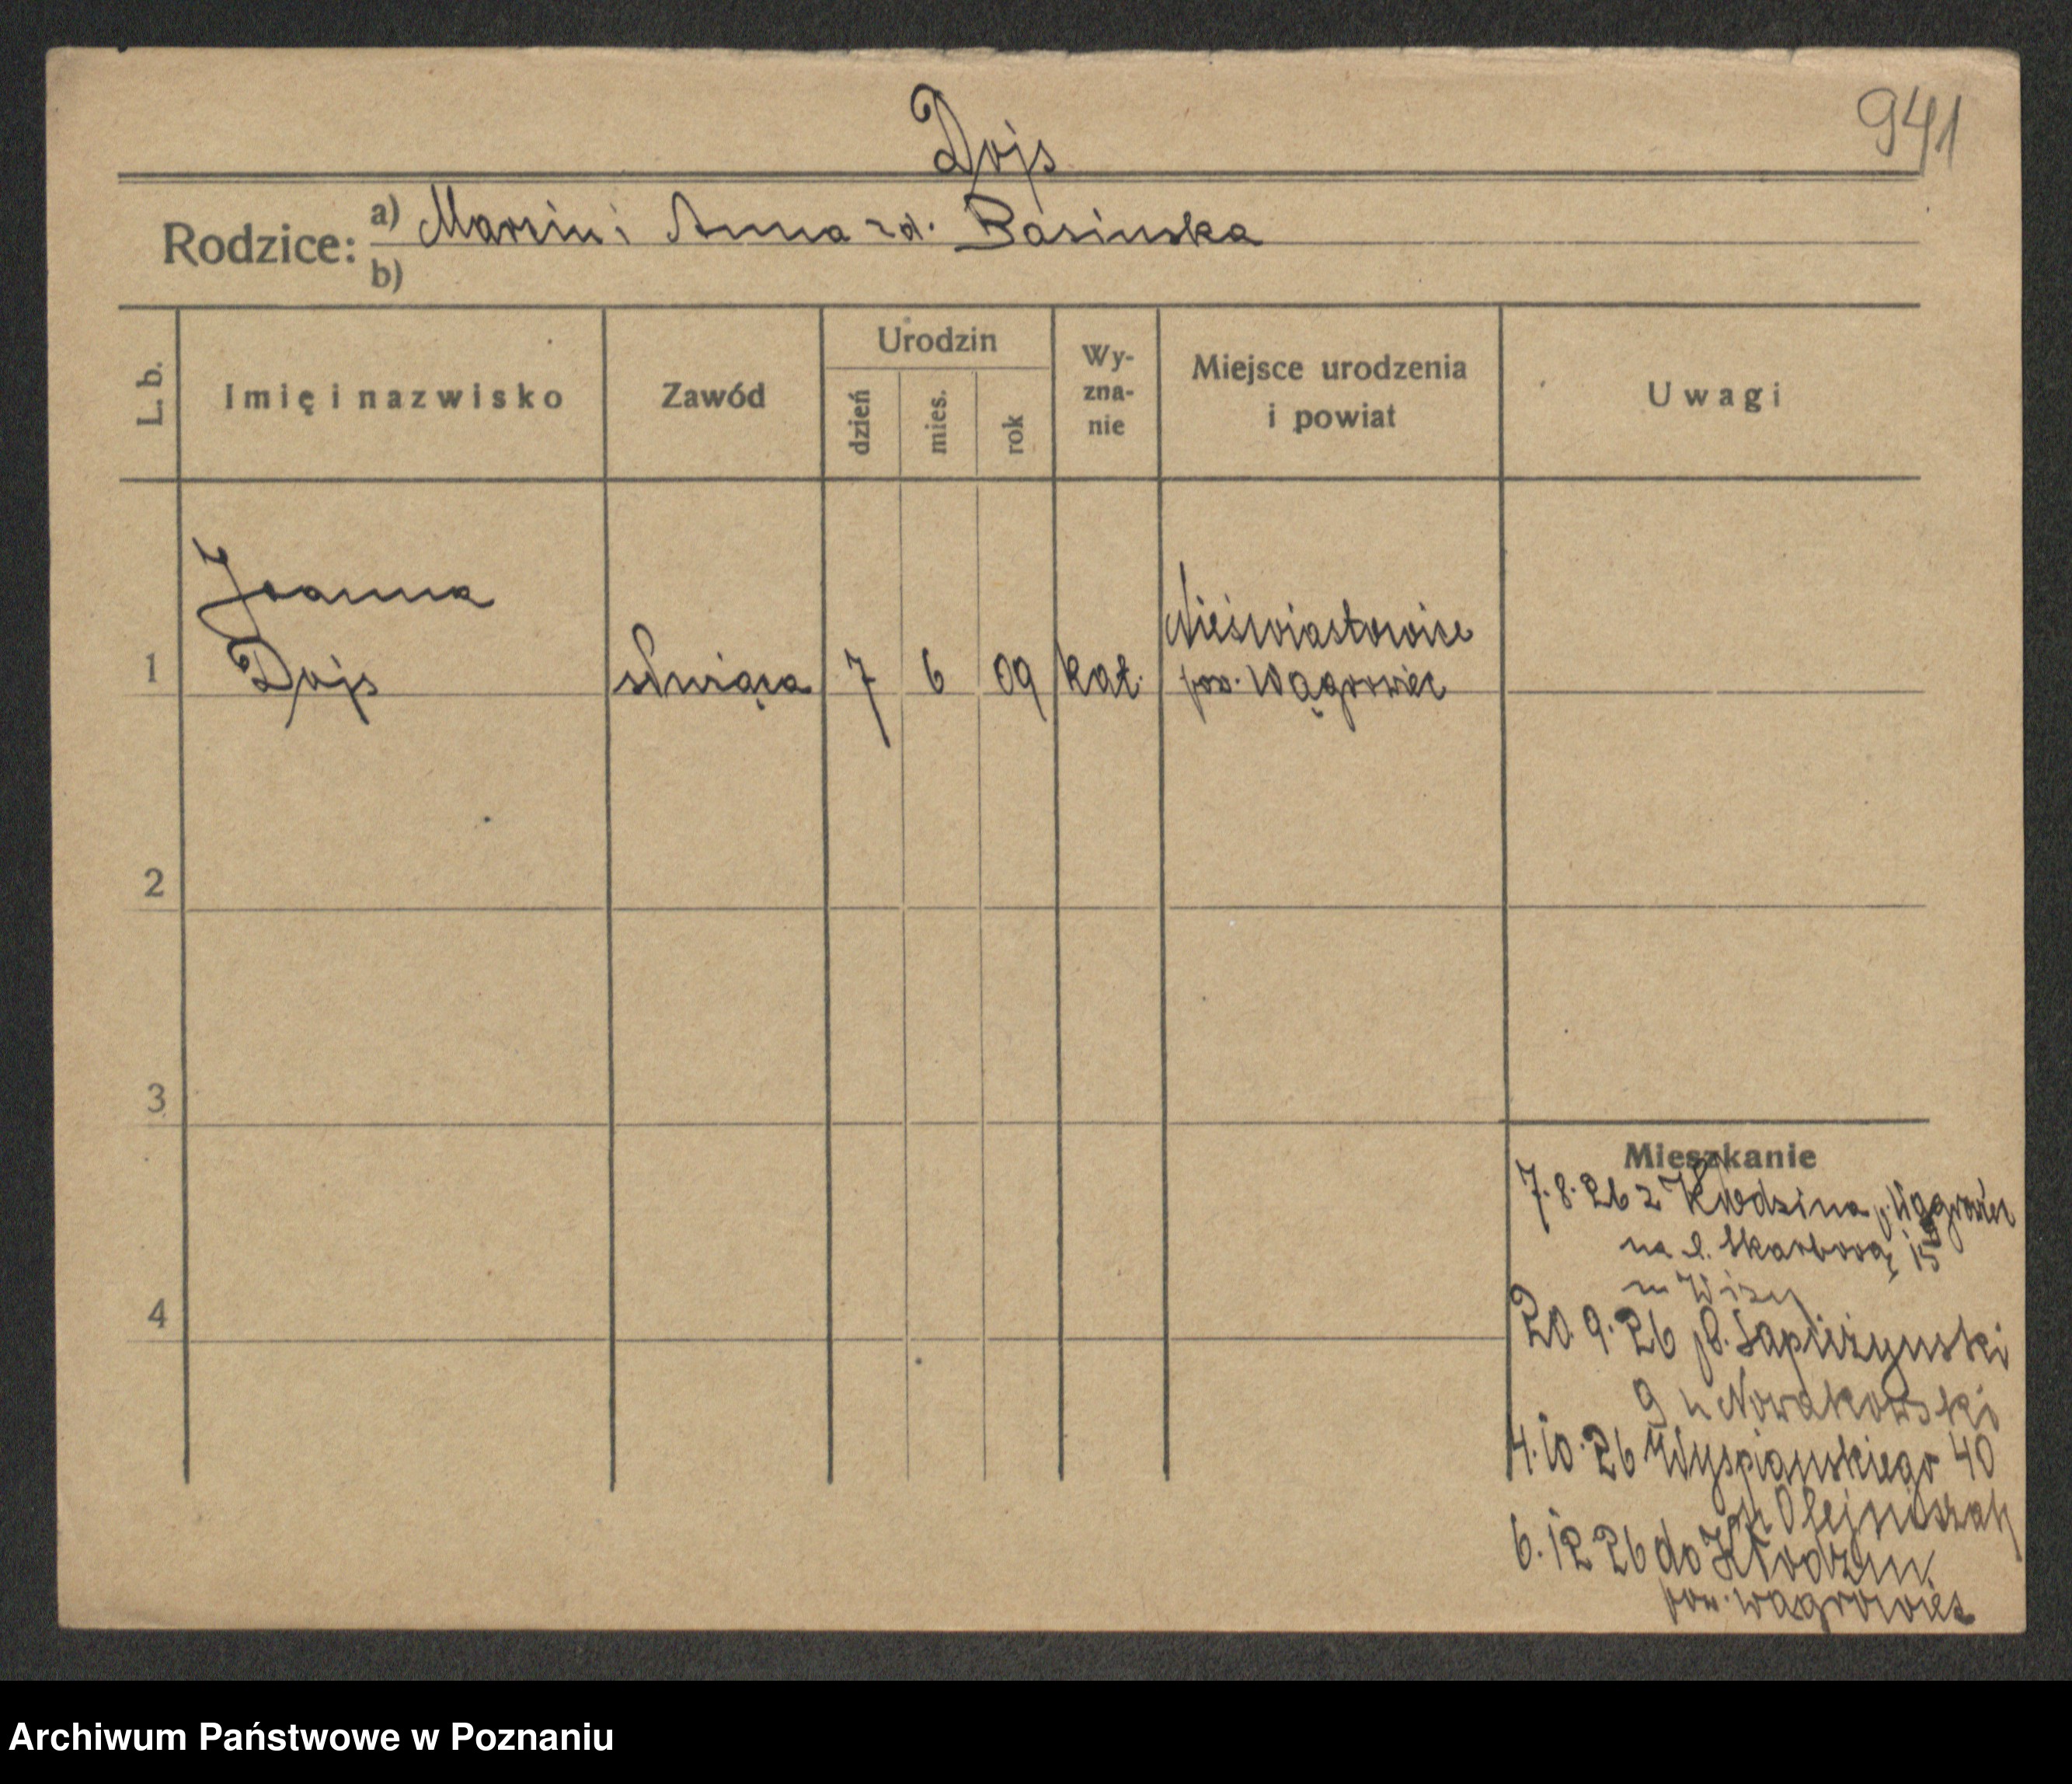 941
Dojs
Rodzice: a) Marcin i Anna zd. Basinska
b)
L. b.
Imię i nazwisko
Zawód
Urodzin
dzień
mies.
rok
Wy-
zna-
nie
Miejsce urodzenia
i powiat
Uwagi
Joanna
1 Dojs służąca 7 6 09 kat.
Nieświastowice
pow. Wągrowiec
2
3
4
Mieszkanie
7.8.26 z Kłodzina p. Wągrowiec
na Skarbową 15
20.9.26 pl. Sapieżynski
9 u Nowakowski
4.10.26 Wyspianskiego 40
u Olejniczak
6.12 26 do Kłodzin
pow. Wągrowiec
Archiwum Państwowe w Poznaniu